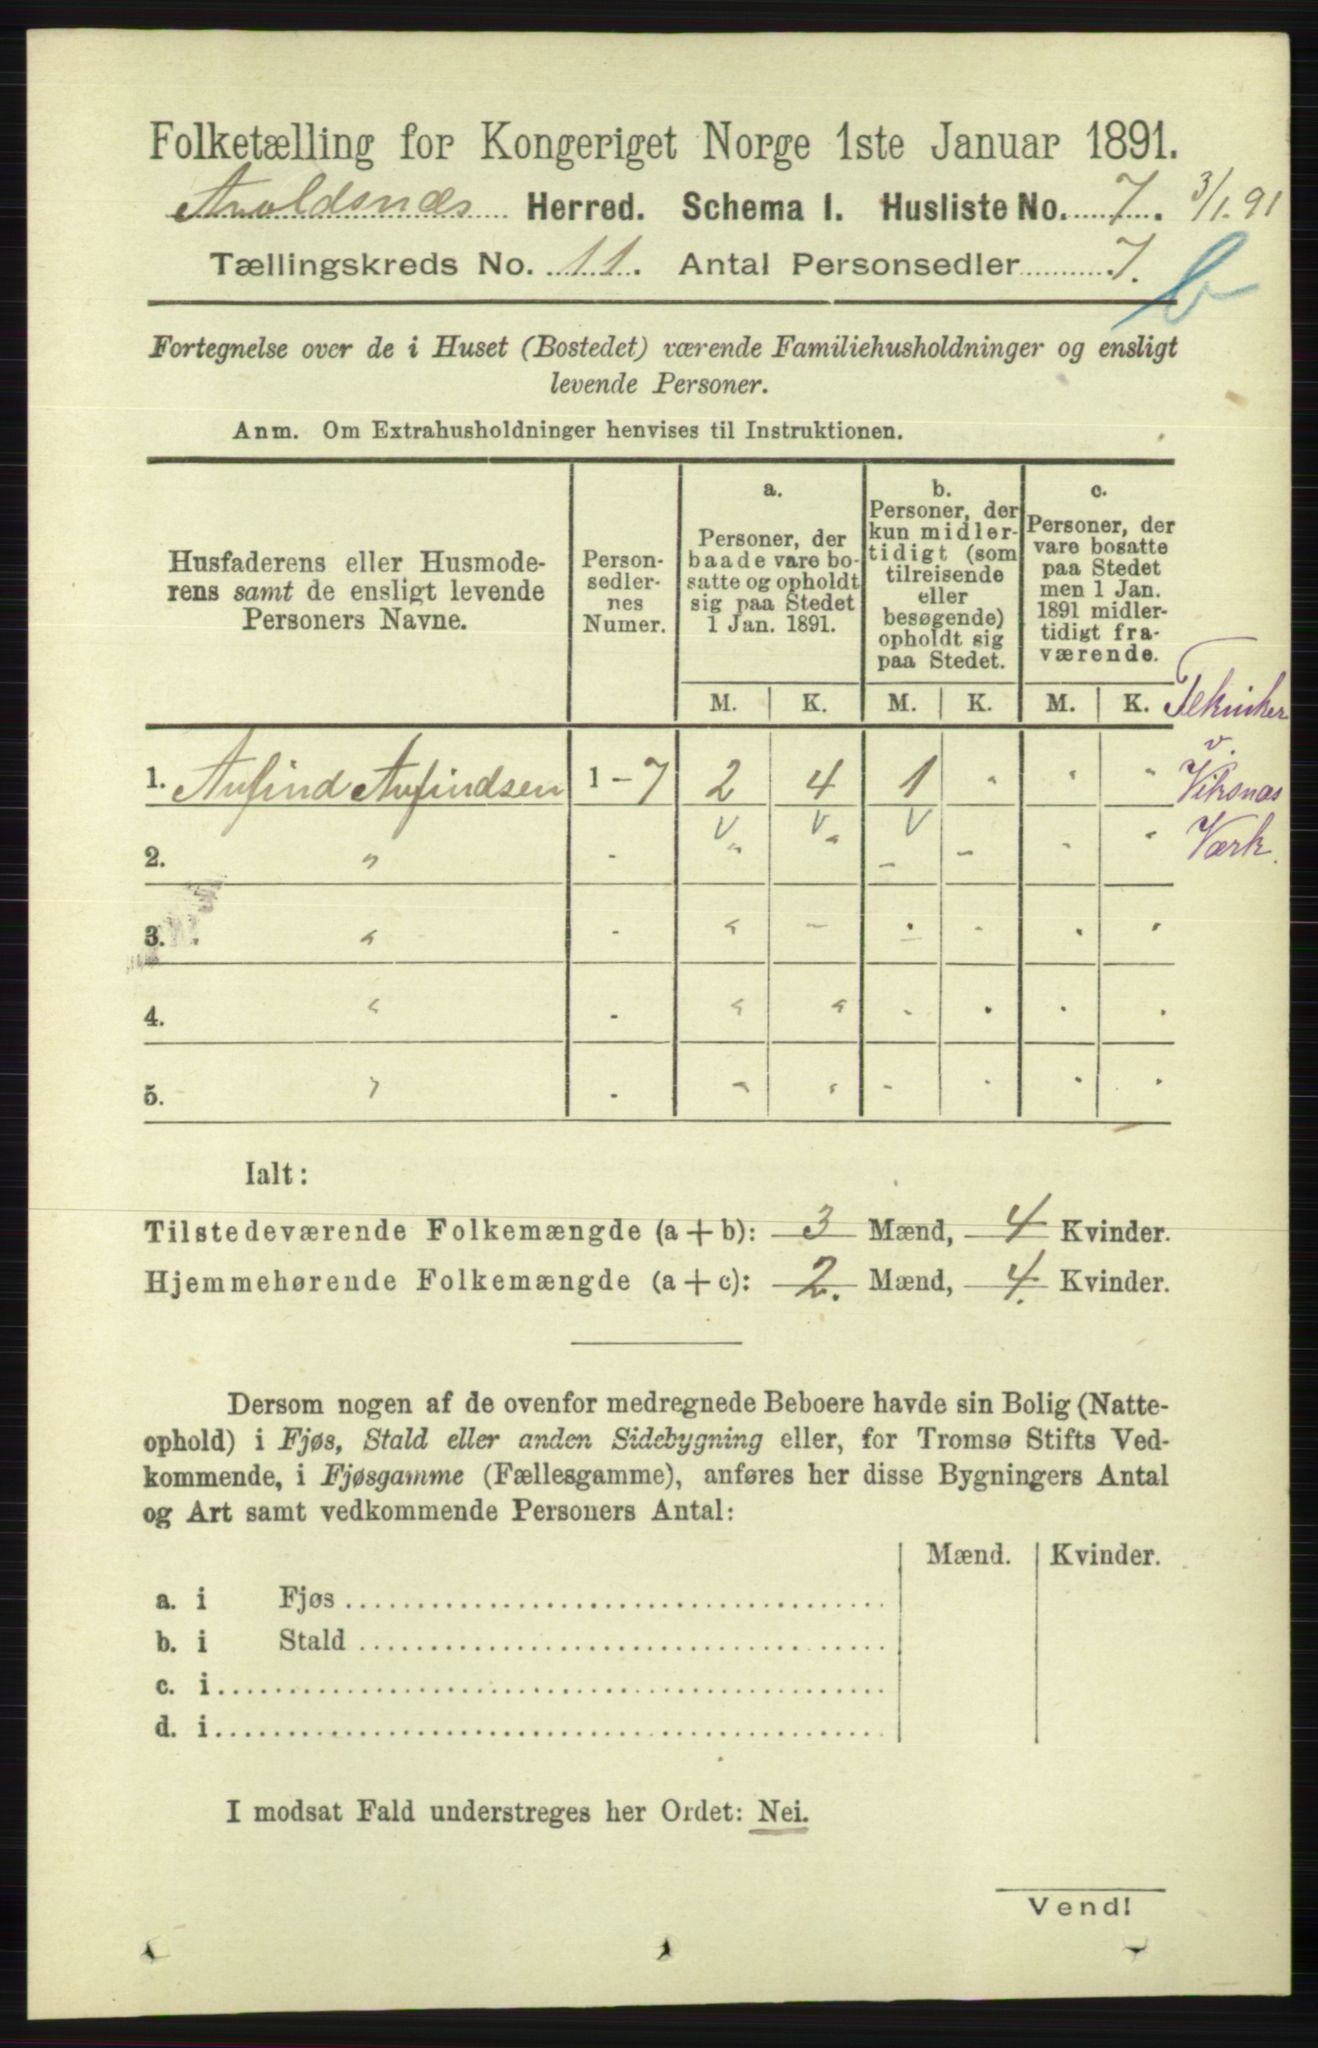 Folketælling for Kongeriget Norge 1ste Januar 1891.
Avaldsnæs Herred. Schema I. Husliste No. 7. 3/1.91
Tællingskreds No. 11. Antal Personsedler 7.
b
Fortegnelse over de i Huset (Bostedet) værende Familiehusholdninger og ensligt
levende Personer.
Anm. Om Extrahusholdninger henvises til Instruktionen.
Husfaderens eller Husmode-
rens samt de ensligt levende
Personers Navne.
Person-
sedler-
nes
Numer.
a.
Personer, der
baade vare bo-
satte og opholdt
sig paa Stedet
1 Jan. 1891.
b.
Personer, der
kun midler-
tidigt (som
tilreisende
eller
besøgende)
opholdt sig
paa Stedet.
c.
Personer, der
vare bosatte
paa Stedet
men 1 Jan.
1891 midler-
tidigt fra-
værende.
M. K. M. K. M. K.
Tekniker
v.
Viksnæs
Værk.
1. Arnfind Arnfindsen 1-7 2 4 1 " " "
V V V
2. " - " " - - - "
3. " - " - . - . "
4. " - " " - . . .
5. " - " " - . . "
Ialt:
Tilstedeværende Folkemængde (a+b): 3 Mænd, 4 Kvinder.
Hjemmehørende Folkemængde (a+c): 2. Mænd, 4. Kvinder.
Dersom nogen af de ovenfor medregnede Beboere havde sin Bolig (Natte-
ophold) i Fjøs, Stald eller anden Sidebygning eller, for Tromsø Stifts Ved-
kommende, i Fjøsgamme (Fællesgamme), anføres her disse Bygningers Antal
og Art samt vedkommende Personers Antal:
Mænd. Kvinder.
a. i Fjøs
b. i Stald
c. i
d. i
I modsat Fald understreges her Ordet: Nei.
Vend!